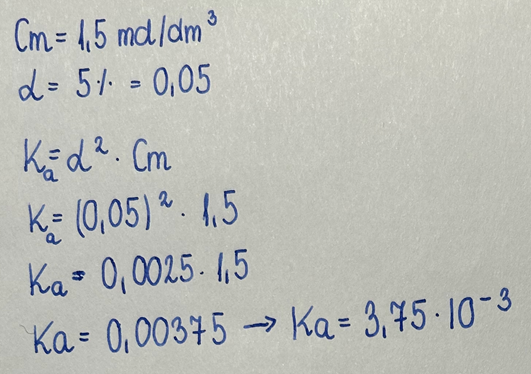 Cm = 1,5 mol/dm³
α = 5% = 0,05
Ka = α² · Cm
Ka = (0,05)² · 1,5
Ka = 0,0025 · 1,5
Ka = 0,00375 → Ka = 3,75 · 10⁻³